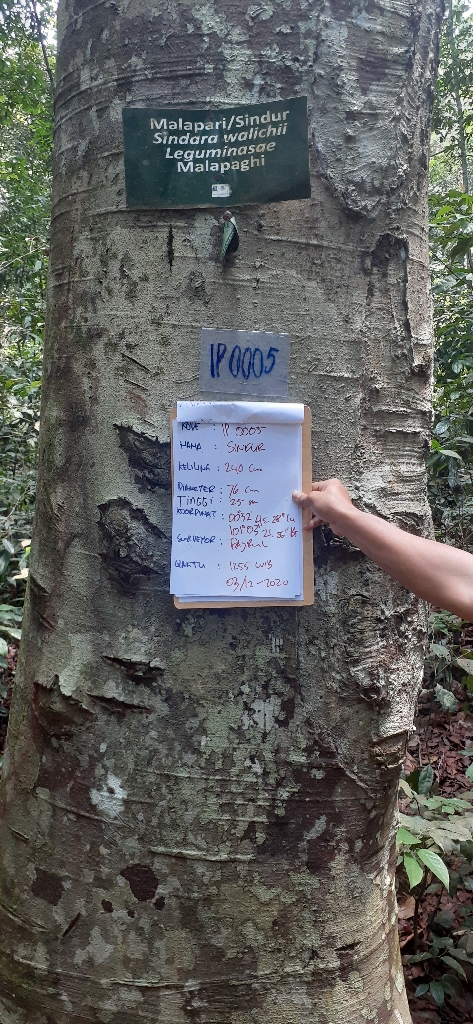 Malapari/Sindur
Sindara walichii
Leguminasae
Malapaghi
IP 0005
KODE : IP 0005
NAMA : SINDUR
KELILING : 240 Cm
DIAMETER : 76 cm
TINGGI : 25 m
KOORDINAT : 00°32'
101°03'
SURVEYOR :
WAKTU : 1255 WIB
03/12-2020